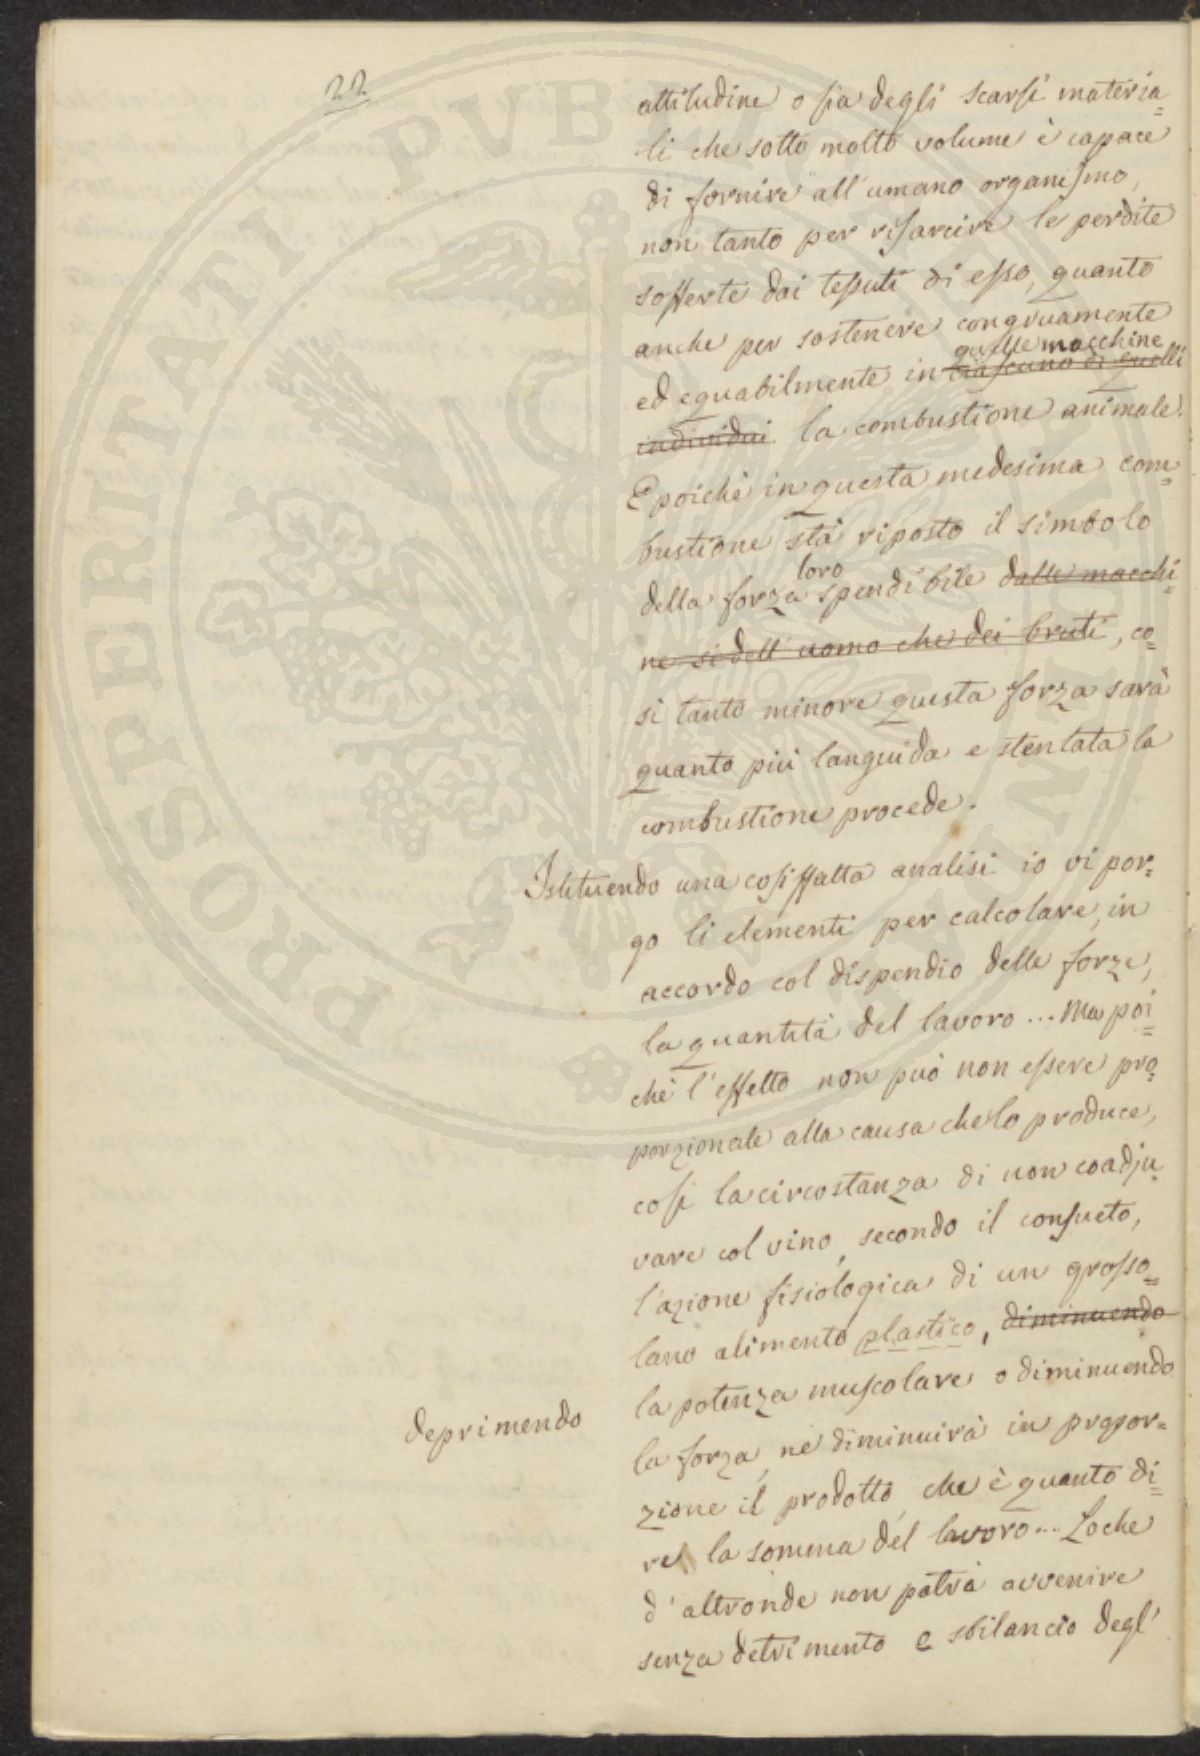 22
attitudine o sia degli scarsi materia=
li che sotto molto volume è capace
di fornire all'umano organismo,
non tanto per risarcire le perdite
sofferte dai tessuti di esso, quanto
anche per sostenere congruamente
quelle macchine
ed equabilmente in ciascuno di quelli
individui la combustione animale.
E poichè in questa medesima com=
bustione stà riposto il simbolo
loro
della forza spendibile dalle macchi=
ne si dell'uomo che dei bruti, co=
si tanto minore questa forza sarà
quanto più languida e stentata la
combustione procede.
Istituendo una cosiffatta analisi io vi por=
go li elementi per calcolare, in
accordo col dispendio delle forze,
la quantità del lavoro... Ma poi=
chè l'effetto non può non essere pro=
porzionale alla causa che lo produce,
così la circostanza di non coadju=
vare col vino, secondo il consueto,
l'azione fisiologica di un grosso=
lano alimento plastico, diminuendo
la potenza muscolare o diminuendo
deprimendo
la forza, ne diminuirà in propor=
zione il prodotto, che è quanto di=
re la somma del lavoro... Loche
d'altronde non potrà avvenire
senza detrimento e sbilancio degl'
PROSPERITATI PVBLICAE